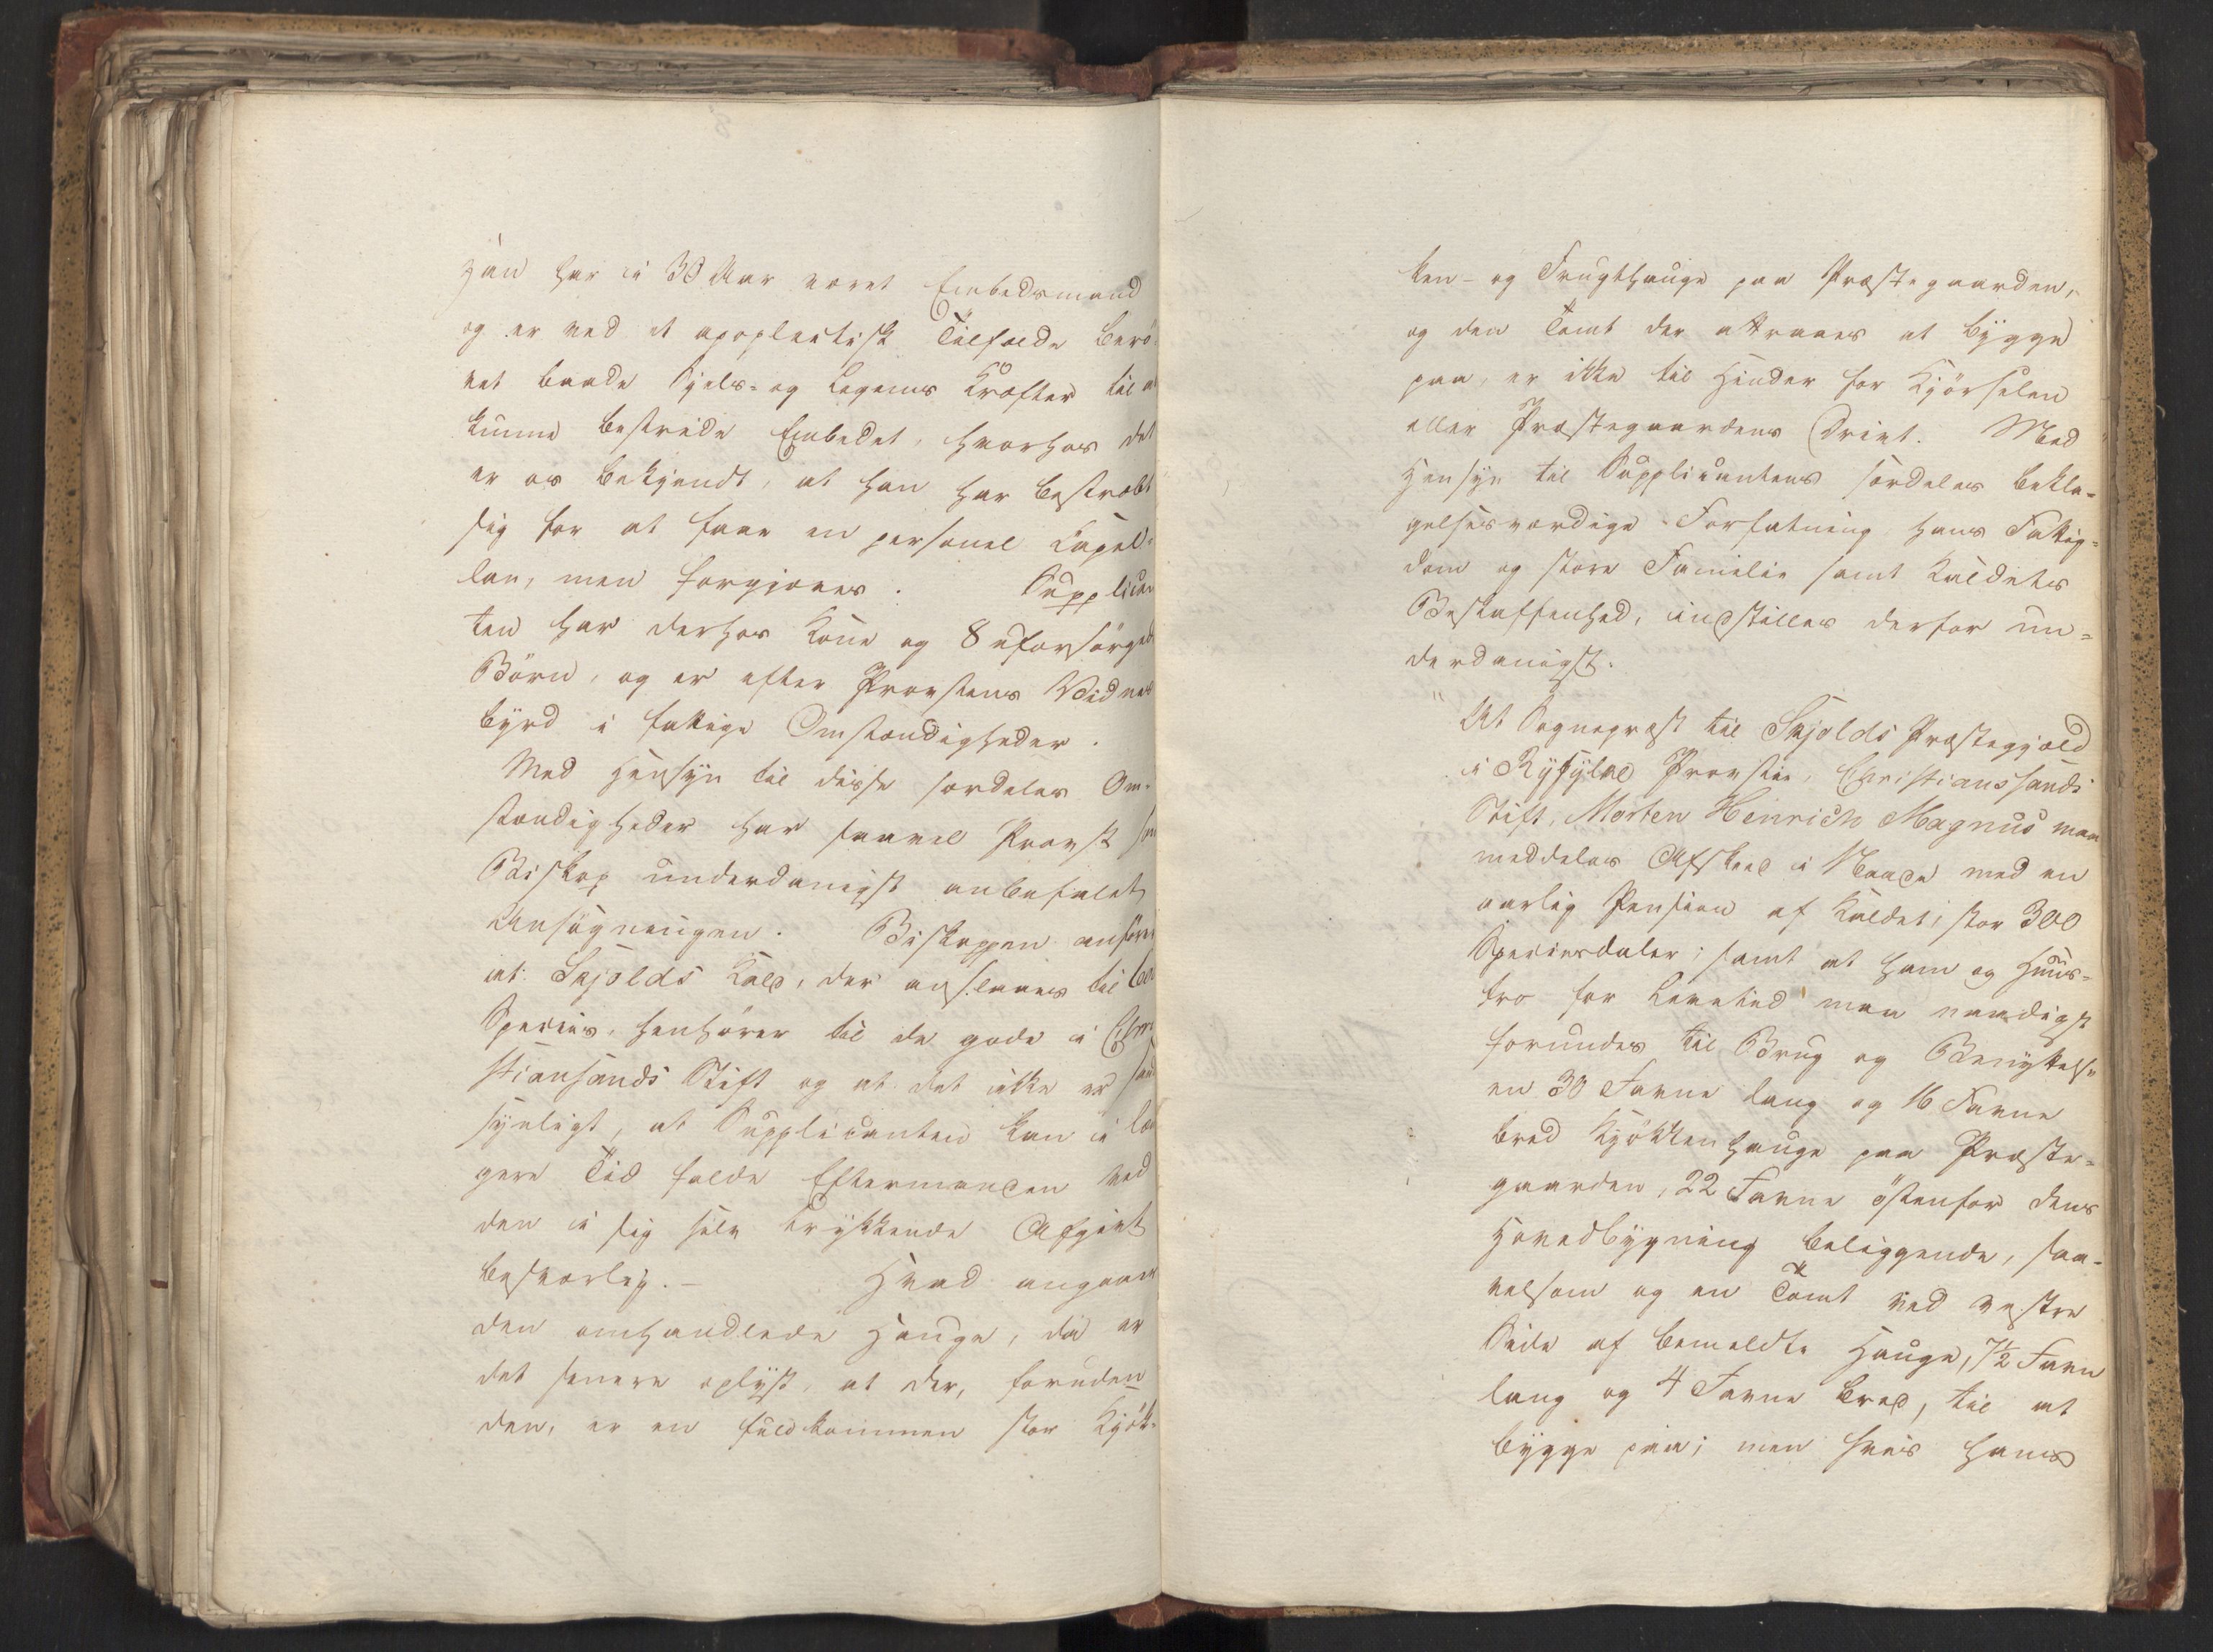 han har i 38 Aar været Embedsmand
og er ved et apoplectisk Tilfælde berö-
vet baade Sjels- og Legems Kræfter til a
kunne bestride Embedet, hvorhos det
er os bekjendt, at han har bestræbt
sig for at faae en personel Capel-
lan, men forgjæves. Supplican
ten har derhos Kone og 8 uforsörgede
Börn, og er efter Provstens Vidnes
byrd i fattige Omstændigheder.
Med Hensyn til disse særdeles Om-
stændigheder har saavel Provst som
Biskop underdanigst anbefalet
Ansögningen. Biskoppen anförer
at Skjolds Kald, der ansees til
Species, henhörer til de gode i Chri
stiansands Stift og at det ikke er sand
synligt, at Supplicanten kan i læn
gere Tid falde Eftermanden ved
den i sig selv trykkende Afgivt
besværlig.- Hvad angaaer
den omhandlede Hauge, da er
det senere oplyst, at der, foruden
den, er en fuldkommen stor Kjök-
ken- og Frugthauge paa Præstegaarden,
og den Tomt der attraaes at bygge
paa, er ikke til Hinder for Kjörselen
eller Præstegaardens Drivt. Med
Hensyn til Supplicantens særdeles bekla-
gelsesværdige Forfatning hans Fattig-
dom og store Familie samt Kaldets
Beskaffenhed, indstilles derfor un-
derdanigst:
"At Sognepræst til Skjolds Præstegjæld
i Ryfylke Provstie, Christianssands
Stift, Morten Henrich Magnus maa
meddeles Afsked i Naade med en
aarlig Pension af Kaldet, stor 300
Speciesdaler; samt at ham og Huus-
tro for Levetid maa naadigst
forundes til Brug og Benyttelse
en 30 Favne lang og 16 Favne
bred Kjökkenhauge paa Præste-
gaarden, 22 Favne östenfor dens
Hovedbygning beliggende, saa-
velsom og en Tomt ved vestre
Side af bemeldte Hauge, 7½ Favn
lang og 4 Favne bred, til at
bygge paa; men hvis hans